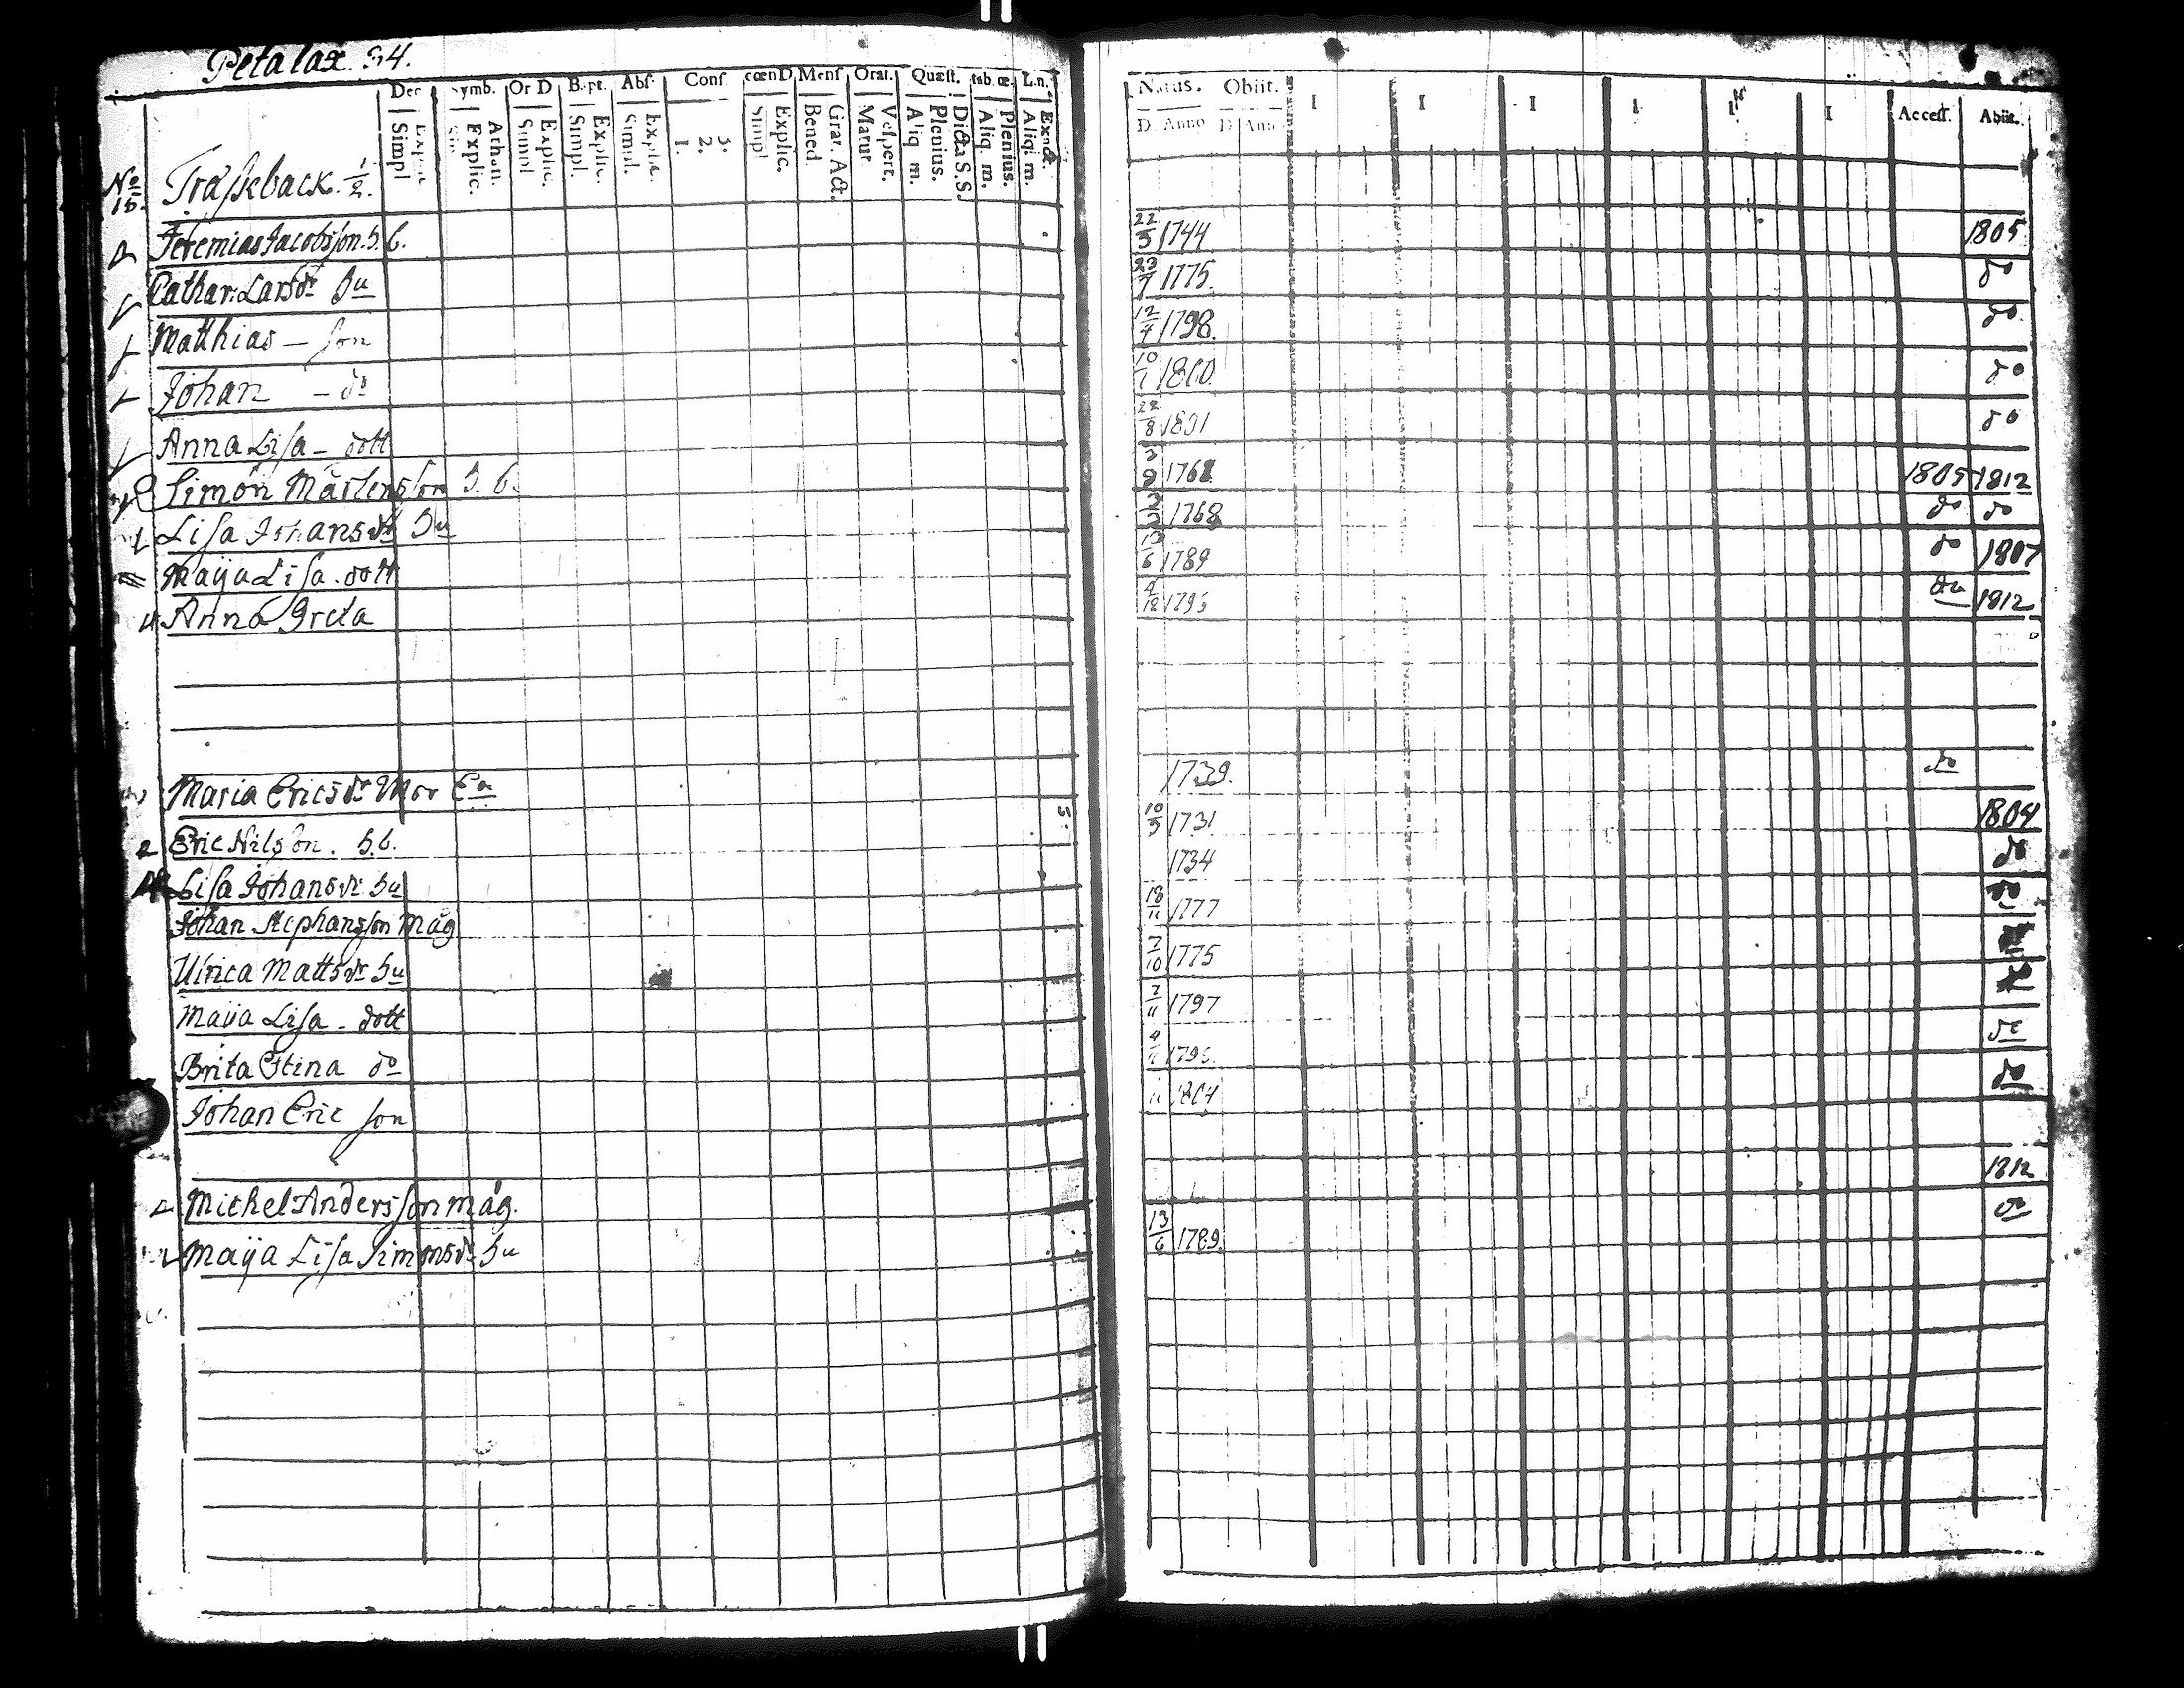 Petalax. 34.
Dec Symb. Or D Bapt. Abs. Conf cœnD Mens Orat. Quæst. tab. œ. Lin.
Simpl Explic. Explic. Athan. Simpl Explic. Simpl. Explic. Simpl. Explic. 1. 2. 3. Simpl Explic. Bened. Grat. Act. Matut. Vespert. Aliq. m. Plenius. Dicta S.S. Aliq. m. Plenius. Aliq. m. Exact.
Natus. Obiit. Access. Abiit.
D. Anno D Ann
No 10. Träskback. 1/2.
Jeremias Jacobsson. b. 22/5 1744 1805
Cathar. Larsdr hu 23/7 1775. do
Matthias – son 12/4 1798. do
Johan – do 10/1 1800. do
Anna Lisa – dott 22/8 1801 do
Simon Mårtensson b. 1768 1805 1812
Lisa Johansdr hu 1768 do do
Maija Lisa. dott 13/6 1789 do 1807
Anna Greta 179 do 1812
Maria Ericsdr Mor Ea 1739. do
Eric Nilsson. b. 10/5 1731 1804
Lisa Johansdr hu 1734 do
Johan Stephansson måg 18/11 1777 do
Ulrica Mattsdr hu 7/10 1775
Maija Lisa – dott 7/11 1797
Brita Stina do 179 do
Johan Eric son 1804 do
Michel Andersson måg. 1812
Maija Lisa Simonsdr hu 13/6 1789. do